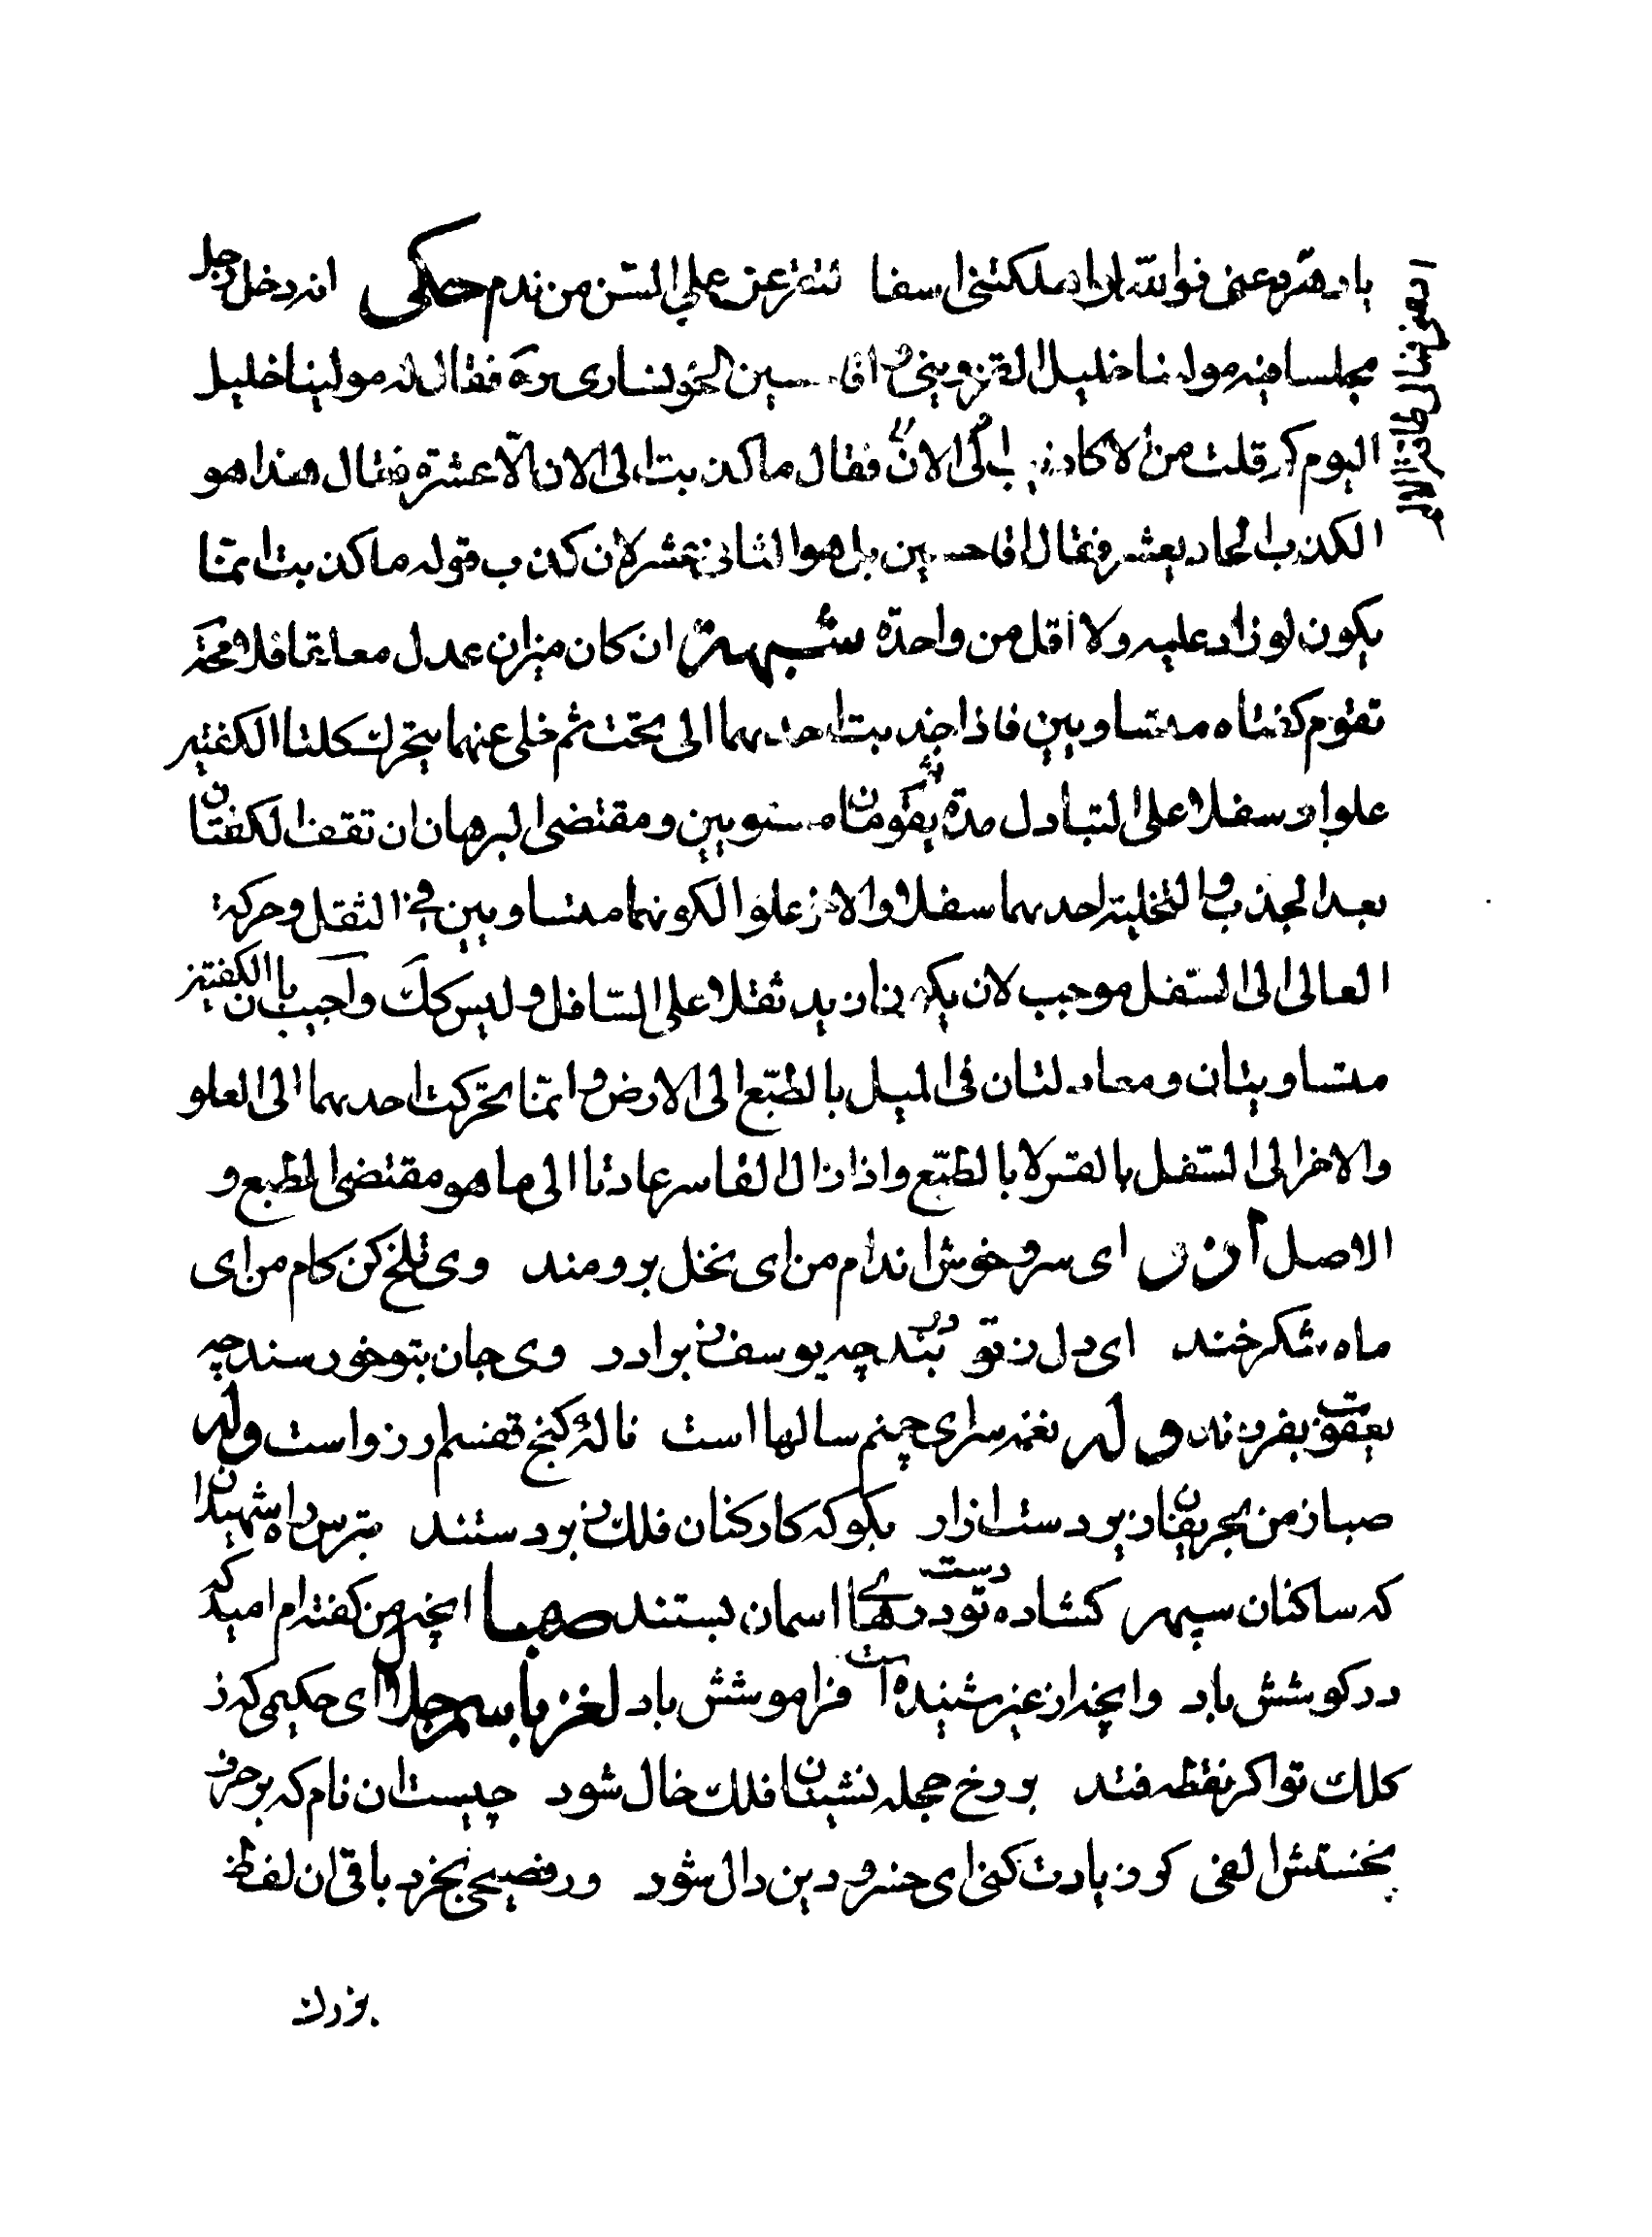 یا دهر دعنی فوالله ان اهلکتنی اسفا لتقرعن علی السن من ندم حکی انه دخل رجل
مجلسا فیه مولینا خلیل القزوینی و اقا حسین الخونساری ره فقال له مولینا خلیل
الیوم کم قلت من الاکاذیب الی الان فقال ما کذبت الی الان الا عشرة فقال هذا هو
الکذب الحادیعشر فقال اقا حسین بل هو الثانی عشر لان کذب قوله ما کذبت انما
یکون لو زاد علیه ولا اقل من واحدة شبهة ان کان میزان عدل معلقا فلا محة
تقوم کفتاه متساویین فاذا جذبت احدیهما الی تحت ثم خلی عنهما یتحرک کلتا الکفتین
علوا و سفلا علی التبادل مدة ثم یقومان مستویین و مقتضی البرهان ان تقف الکفتان
بعد الجذب و التخلیة احدیهما سفلا و الاخر علوا لکونهما متساویین فی الثقل و حرکة
العالی الی السفل موجب لان یکون ازید ثقلا علی السافل و لیس کک و اجیب بان الکفتین
متساویتان و معادلتان فی المیل بالطبع الی الارض و انما تحرکت احدیهما الی العلو
والاخر الی السفل بالقسر لا بالطبع و اذا زال القاسر عادتا الی ما هو مقتضی الطبع و
الاصل آذر ای سرو خوش اندام من ای نخل برومند وی تلخ کن کام من ای
ماه شکر خند ای دل ز تو در بند چه یوسف ز برادر وی جان بتو خورسند چه
یعقوب بفرزند وله نغمه سرای چمنم سالها است ناله کنج قفسم ارزواست وله
صبا ز من بحریفان زبردست ازار بکو که کارکنان فلک زبردستند بترس ز اه شهیدان
که ساکنان سپهر کشاده دست تو درهای اسمان بستند صهبا انچه من کفته ام امید که
در کوشش باد وانچه از غیر شنیده است فراموشش باد لغز باسم جلال ای حکیمی که ز
کلک تو اکر نقطه فتد بر رخ حجله نشینان فلک خال شود چیست ان نام که بر حرف
نخستش الفی کر زیادت کنی ای خسرو دین دال شود ور فصیحی نخرد باقی ان لفظ